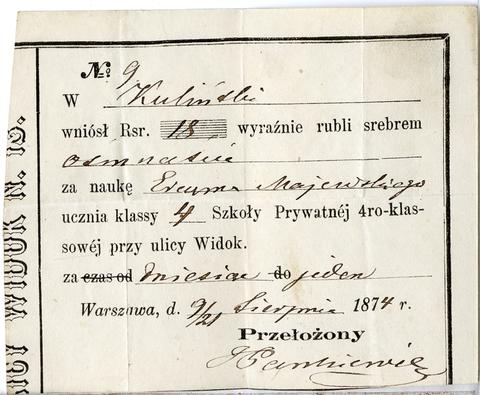 № 9
W Kuliński
wniósł Rsr. 18 wyraźnie rubli srebrem
osmnaście
za naukę Erazma Majewskiego
ucznia klassy 4 Szkoły Prywatnéj 4ro-klas-
sowéj przy ulicy Widok.
za czas od miesiąc do jeden
Warszawa, d. 9/21 Sierpnia 1874 r.
Przełożony
JPankiewicz
WIDOK N. 15.